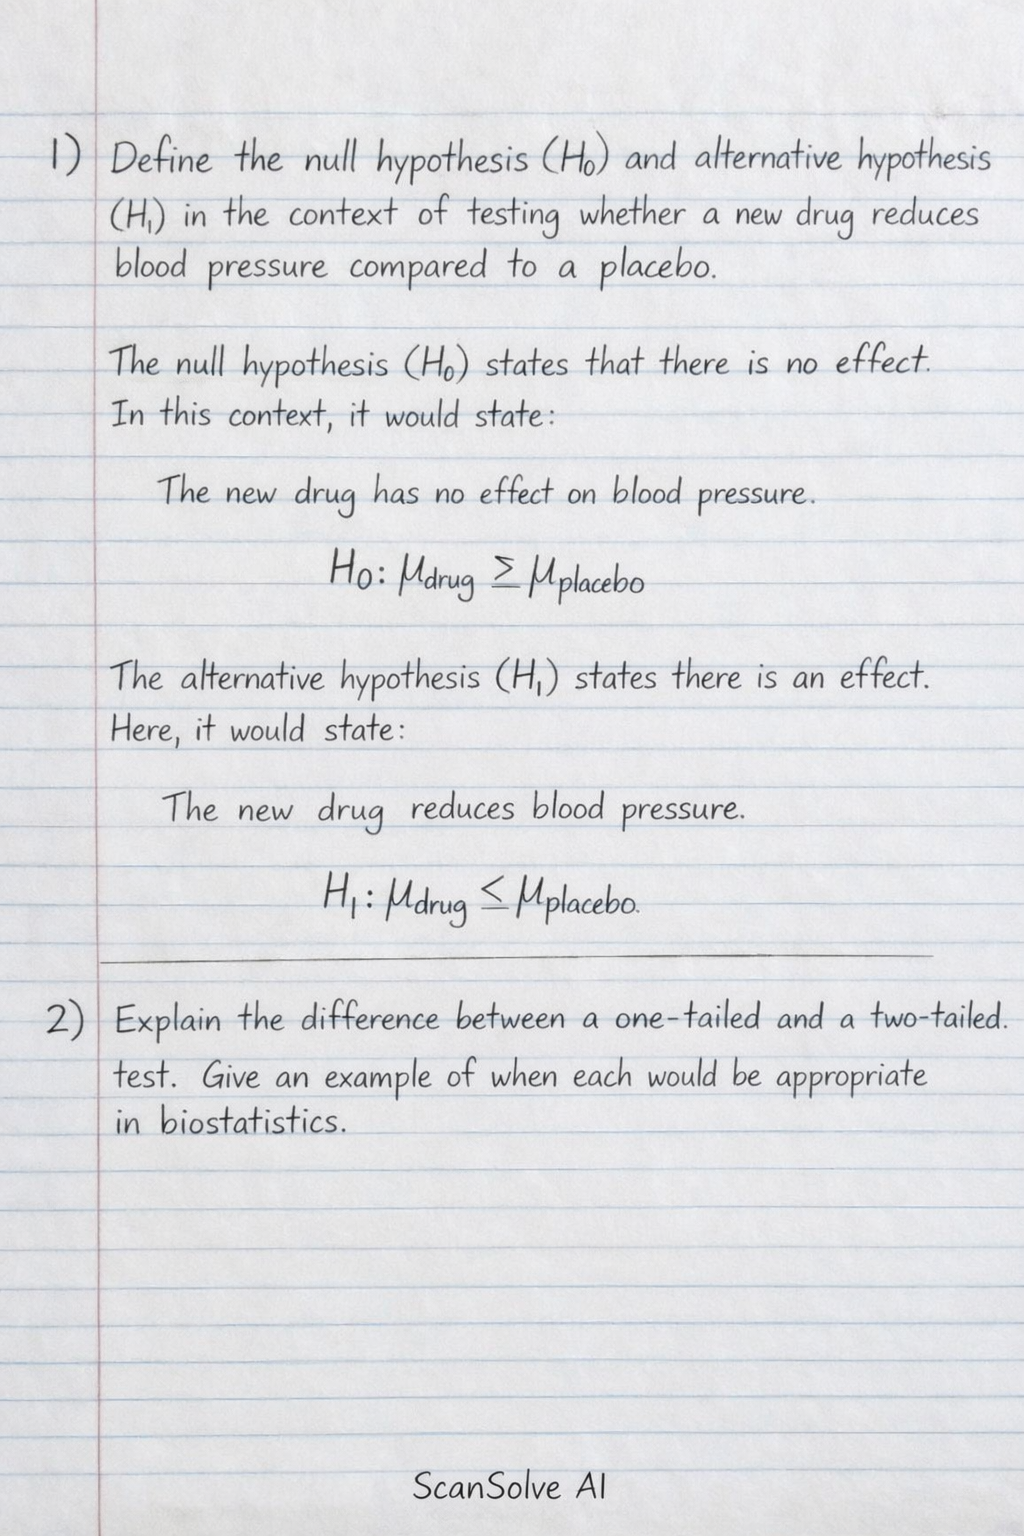 1) Define the null hypothesis (H₀) and alternative hypothesis
(H₁) in the context of testing whether a new drug reduces
blood pressure compared to a placebo.
The null hypothesis (H₀) states that there is no effect.
In this context, it would state:
The new drug has no effect on blood pressure.
H₀: μdrug ≥ μplacebo
The alternative hypothesis (H₁) states there is an effect.
Here, it would state:
The new drug reduces blood pressure.
H₁: μdrug ≤ μplacebo.
2) Explain the difference between a one-tailed and a two-tailed.
test. Give an example of when each would be appropriate
in biostatistics.
ScanSolve AI